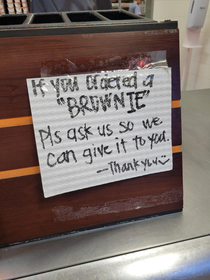 If you ordered a
"BROWNIE"
Pls ask us so we
can give it to you.
—Thank you